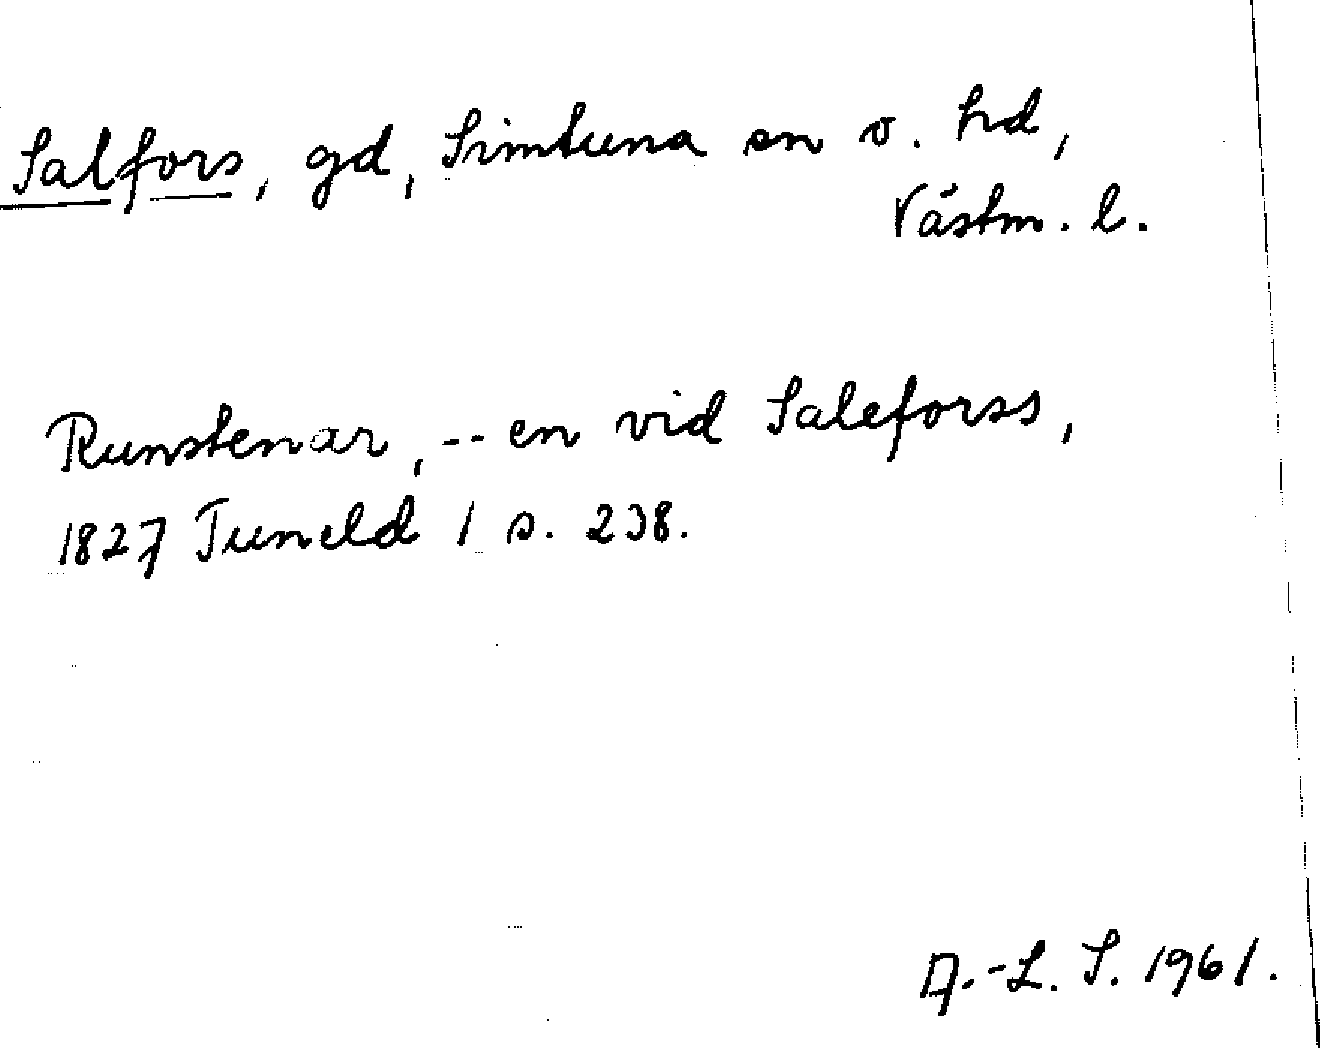 Salfors, gd, Simtuna sn o. hd,
Västm. l.
Runstenar, -- en vid Saleforss,
1827 Tuneld 1 s. 238.
A.-L. S. 1961.